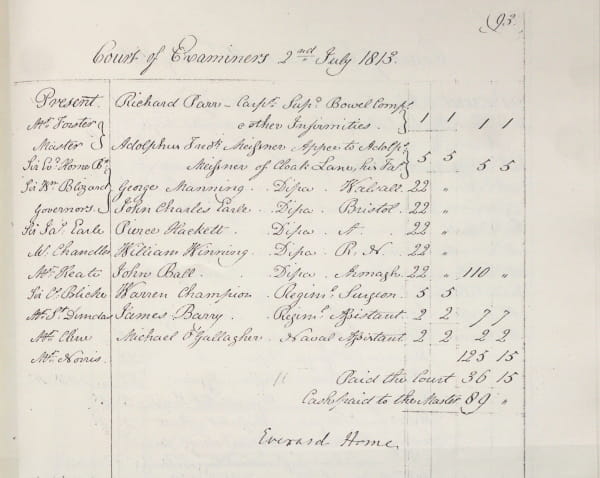 93.
Court of Examiners 2nd July 1813.
Present. Richard Parr - Carpr. Supd. Bowel Compt. 1 1
Mr. Forster & other Infirmities. 1 1
Master Adolphus Fredk. Meissner Appce to Adolps. 5 5
Sir Ev. Home Bt. Meissner of Cloak Lane, his Far. 5 5
Sir Wm Blizard George Manning . . Dipa . Walsall. 22 "
Governors. John Charles Earle . . Dipa . Bristol. 22 "
Sir Jas. Earle Pierce Hackett . . Dipa . A. 22 "
Mr. Chandler William Winning . . Dipa . R. N. 22 "
Mr. Keate John Ball . . Dipa . Armagh. 22 " 110 "
Sir Cs. Blicke Warren Champion . Regiml. Surgeon. 5 5
Mr. Sr. Dundas James Barry . Regiml. Assistant. 2 2 7 7
Mr. Michael O'Gallagher . Naval Assistant 2 2 2 2
Mr. Norris. 125 15
Paid the Court 36 15
Cash paid to the Master 89 "
Everard Home.